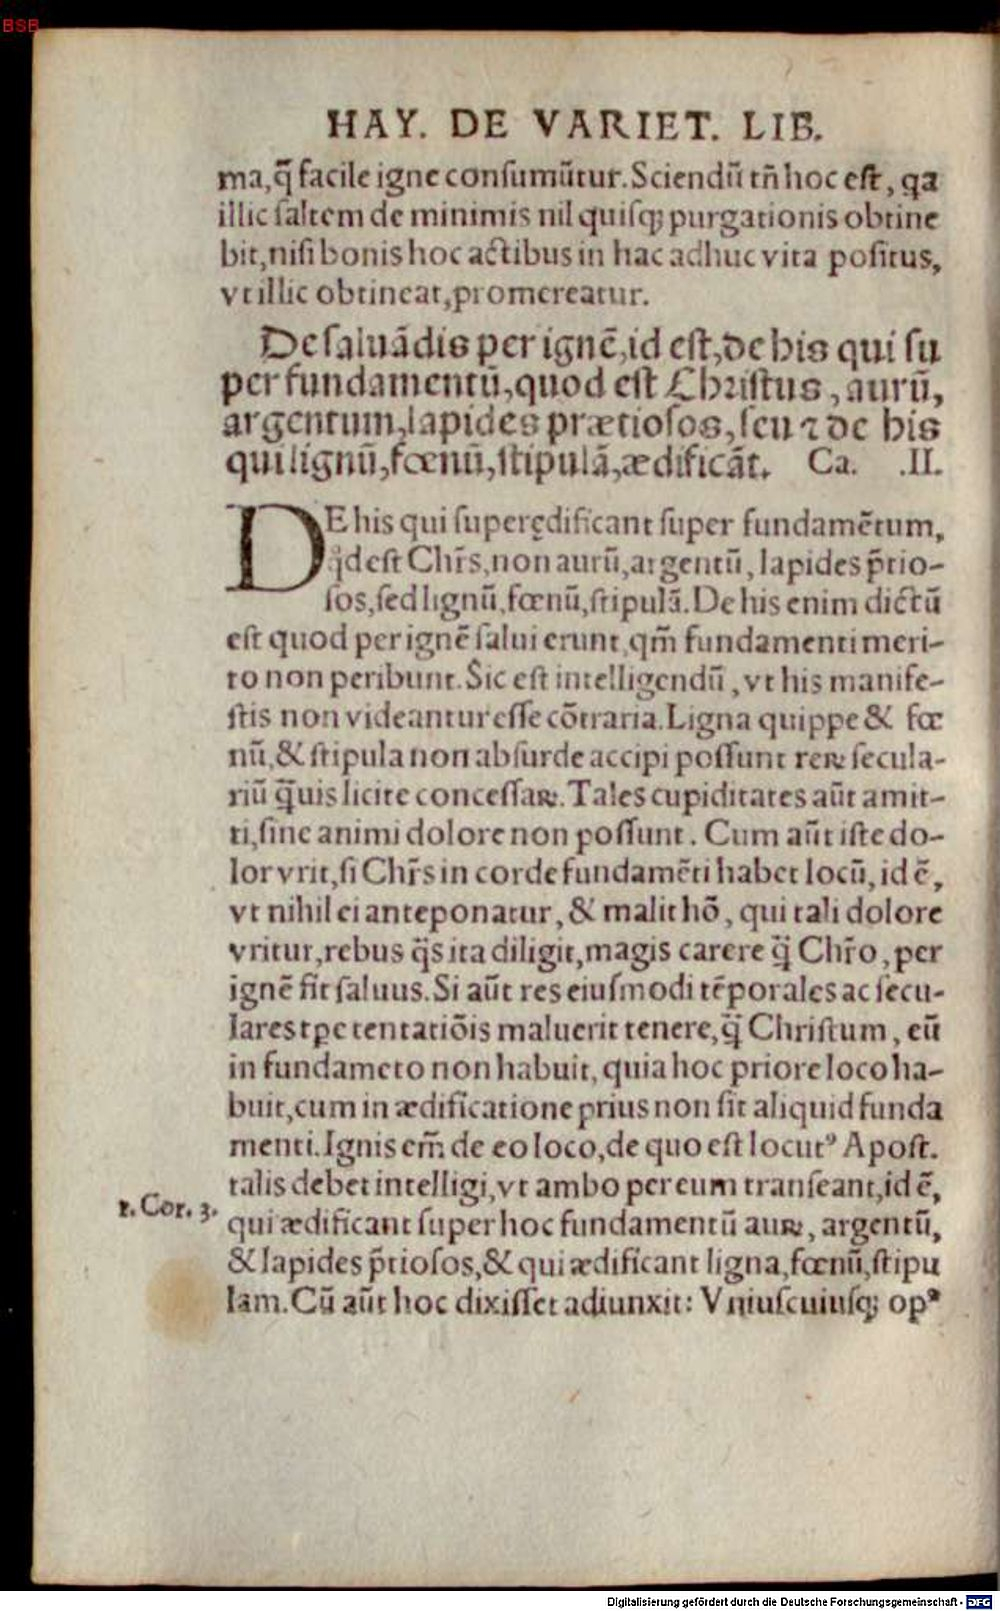 BSB
HAY. DE VARIET. LIB.
ma, q̃ facile igne consumũtur. Sciendũ tñ hoc est, qa
illic saltem de minimis nil quisq; purgationis obtine
bit, nisi bonis hoc actibus in hac adhuc vita positus,
vt illic obtineat, promereatur.
De saluãdis per ignẽ, id est, de his qui su
per fundamentũ, quod est Christus, aurũ,
argentum, lapides prætiosos, seu ⁊ de his
qui lignũ, fœnũ, stipulã, ædificãt. Ca. .II.
DE his qui superędificant super fundamẽtum,
qd est Chr̃s, non aurũ, argentũ, lapides p̃tio-
sos, sed lignũ, fœnũ, stipulã. De his enim dictũ
est quod per ignẽ salui erunt, qm̃ fundamenti meri-
to non peribunt. Sic est intelligendũ, vt his manife-
stis non videantur esse cõtraria. Ligna quippe & fœ
nũ, & stipula non absurde accipi possunt reꝝ secula-
riũ q̃uis licite concessaꝝ. Tales cupiditates aũt amit-
ti, sine animi dolore non possunt. Cum aũt iste do-
lor vrit, si Chr̃s in corde fundamẽti habet locũ, id ẽ,
vt nihil ei anteponatur, & malit hõ, qui tali dolore
vritur, rebus q̃s ita diligit, magis carere q̃ Chr̃o, per
ignẽ fit saluus. Si aũt res eiusmodi tẽporales ac secu-
lares tꝑe tentatiõis maluerit tenere, q̃ Christum, eũ
in fundameto non habuit, quia hoc priore loco ha-
buit, cum in ædificatione prius non sit aliquid funda
menti. Ignis em̃ de eo loco, de quo est locutꝰ Apost.
talis debet intelligi, vt ambo per eum transeant, id ẽ,
1. Cor. 3.
qui ædificant super hoc fundamentũ auꝝ, argentũ,
& lapides p̃tiosos, & qui ædificant ligna, fœnũ, stipu
lam. Cũ aũt hoc dixisset adiunxit: Vniuscuiusq; opꝰ
Digitalisierung gefördert durch die Deutsche Forschungsgemeinschaft - DFG